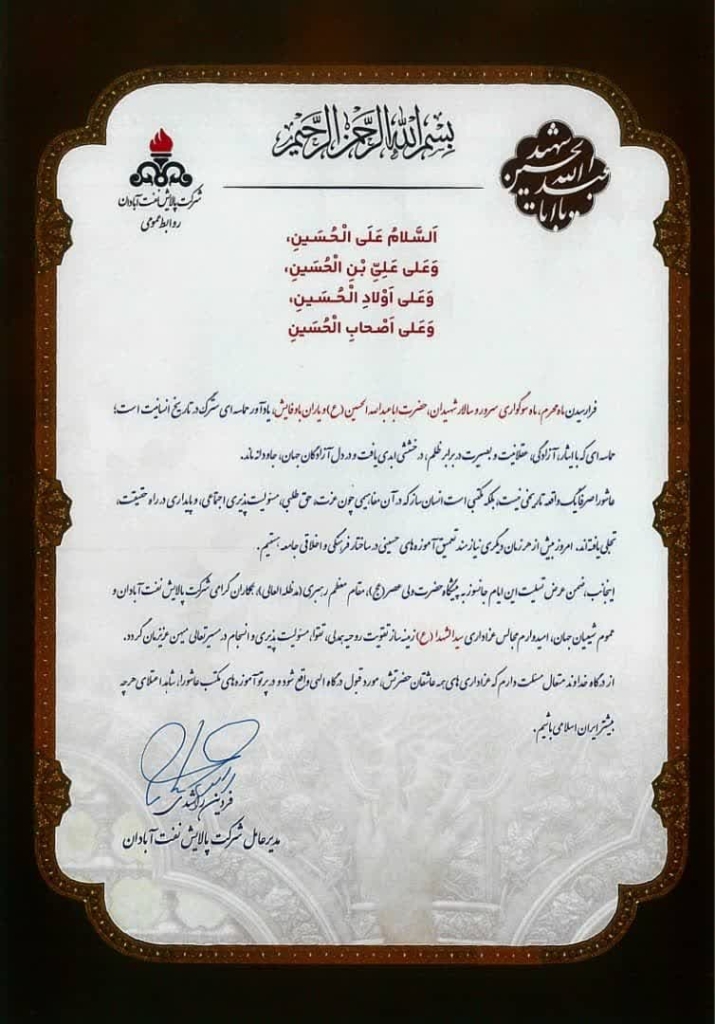 بسم الله الرحمن الرحیم
یا اباعبدالله الحسین شهید
شرکت پالایش نفت آبادان
روابط عمومی
اَلسَّلامُ عَلَی الْحُسَینِ،
وَعَلی عَلِیِّ بْنِ الْحُسَینِ،
وَعَلی اَوْلادِ الْحُسَینِ،
وَعَلی اَصْحابِ الْحُسَینِ
فرارسیدن ماه محرم، ماه سوگواری سرور و سالار شهیدان، حضرت اباعبدالله الحسین (ع) و یاران باوفایش، یادآور حماسه ای سترگ در تاریخ انسانیت است؛
حماسه ای که با ایثار، آزادگی، عقلانیت و بصیرت در برابر ظلم، درخششی ابدی یافت و در دل آزادگان جهان، جاودانه ماند.
عاشورا صرفا یک واقعه تاریخی نیست، بلکه مکتبی است انسان ساز که در آن مفاهیمی چون عزت، حق طلبی، مسئولیت پذیری اجتماعی، و پایداری در راه حقیقت،
تجلی یافته اند. امروز بیش از هر زمان دیگری نیازمند تعمیق آموزه های حسینی در ساختار فرهنگی و اخلاقی جامعه هستیم.
اینجانب، ضمن عرض تسلیت این ایام جانسوز به پیشگاه حضرت ولی عصر (عج)، مقام معظم رهبری (مدظله العالی)، همکاران گرامی شرکت پالایش نفت آبادان و
عموم شیعیان جهان، امیدوارم مجالس عزاداری سیدالشهدا (ع) زمینه ساز تقویت روحیه همدلی، تقوا، مسئولیت پذیری و انسجام در مسیر تعالی میهن عزیزمان گردد.
از درگاه خداوند متعال مسئلت دارم که عزاداری های همه عاشقان حضرتش، مورد قبول درگاه الهی واقع شود و در پرتو آموزه های مکتب عاشورا، شاهد اعتلای هرچه
بیشتر ایران اسلامی باشیم.
فردین راشدی
مدیرعامل شرکت پالایش نفت آبادان